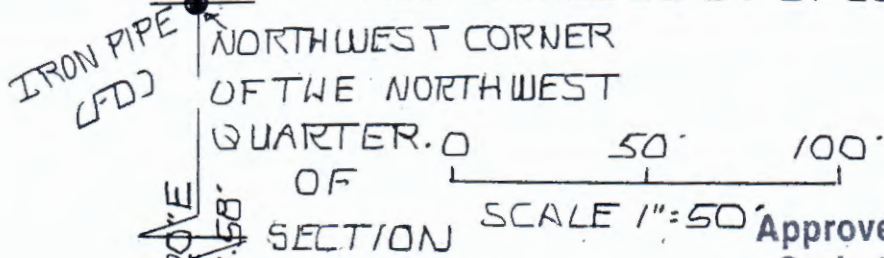 IRON PIPE
(FD)
NORTHWEST CORNER
OF THE NORTHWEST
QUARTER.
OF
SECTION
0 50' 100'
SCALE 1"=50'
Approve